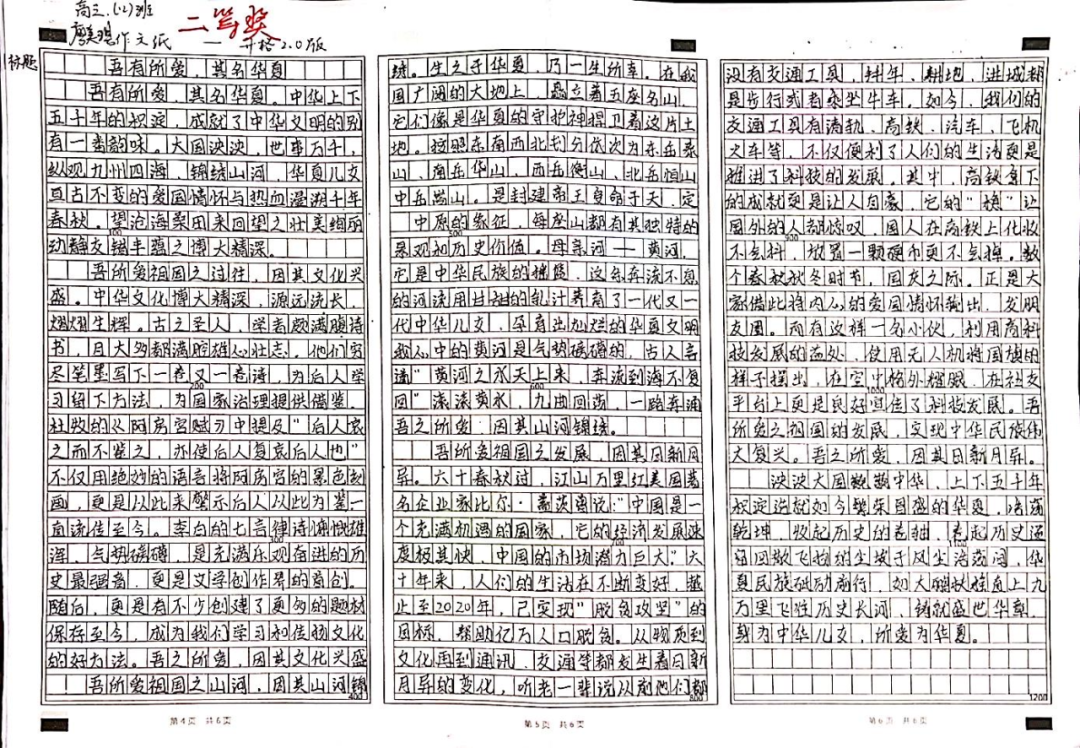 高三.(2)班
二等奖
作文纸 — 升格2.0版
标题
吾有所爱，其名华夏
吾有所爱，其名华夏。中华上下
五千年的积淀，成就了中华文明的别
有一番韵味。大国泱泱，世事万千，
纵观九州四海，锦绣山河，华夏儿女
亘古不变的爱国情怀与热血漫溯千年
春秋。望沧海桑田来回望之壮美绚丽
动静文辞丰蕴之博大精深。
吾所爱祖国之过往，因其文化兴
盛。中华文化博大精深，源远流长，
熠熠生辉。古之圣人，学者颇满腹诗
书，且大多都满腔雄心壮志。他们穷
尽笔墨写下一卷又一卷诗，为后人学
习留下方法，为国家治理提供借鉴，
杜牧的《阿房宫赋》中提及“后人哀
之而不鉴之，亦使后人复哀后人也”
不仅用绝妙的语言将阿房宫的景色刻
画，更是以此来警示后人以此为鉴一
直流传至今。李白的七言律诗慷慨雄
浑，气势磅礴，是充满乐观奋进的历
史最强音，更是文学创作界的首创。
随后，更是有不少创建了更多的题材
保存至今，成为我们学习和传扬文化
的好方法。吾之所爱，因其文化兴盛
吾所爱祖国之山河，因其山河锦
绣。生之于华夏，乃一生所幸。在我
国广阔的大地上，矗立着五座名山，
它们像是华夏的守护神捍卫着这片土
地。按照东南西北划分依次为东岳泰
山，南岳华山，西岳衡山，北岳恒山
中岳嵩山。是封建帝王受命于天，定
中原的象征，每座山都有其独特的
景观和历史价值。母亲河——黄河，
它是中华民族的摇篮，这条奔流不息
的河流用甘甜的乳汁养育了一代又一
代中华儿女，孕育出灿烂的华夏文明
我心中的黄河是气势磅礴的，古人言
道“黄河之水天上来，奔流到海不复
回”滚滚黄水，九曲回荡，一路奔涌
吾之所爱，因其山河锦绣。
吾所爱祖国之发展，因其日新月
异。六十春秋过，江山万里红美国著
名企业家比尔·盖茨曾说：“中国是一
个充满机遇的国家，它的经济发展速
度极其快，中国的市场潜力巨大”六
十年来，人们的生活在不断变好，截
止至2020年，已实现“脱贫攻坚”的
目标，帮助亿万人口脱贫。从物质到
文化再到通讯，交通等都发生着日新
月异的变化，听老一辈说从前他们都
没有交通工具，拜年，耕地，进城都
是步行或者乘坐牛车。如今，我们的
交通工具有滴轨，高铁，汽车，飞机
火车等，不仅便利了人们的生活更是
推进了科技的发展。其中，高铁拿下
的成就更是让人自豪，它的“稳”让
国外的人都惊叹，国人在高铁上化妆
不会抖，放置一颗硬币更不会掉。数
个春秋秋冬时节，国庆之际。正是大
家借此将内心的爱国情怀抛出，发朋
友圈。而有这样一名小伙，利用高科
技发展的益处，使用无人机将国旗的
样子摆出，在空中格外耀眼，在社交
平台上更是良好宣传了科技发展。吾
所爱之祖国的发展，实现中华民族伟
大复兴。吾之所爱，因其日新月异。
泱泱大国巍巍中华，上下五千年
积淀造就如今繁荣昌盛的华夏，
乾坤，收起历史的卷轴，卷起历史
回散飞扬的尘埃于风尘，华
夏民族砥砺前行，如大鹏扶摇直上九
万里飞往历史长河，铸就盛世华章，
我为中华儿女，所爱为华夏。
100
200
300
400
500
600
700
800
900
1000
1100
1200
第4页 共6页
第5页 共6页
第6页 共6页